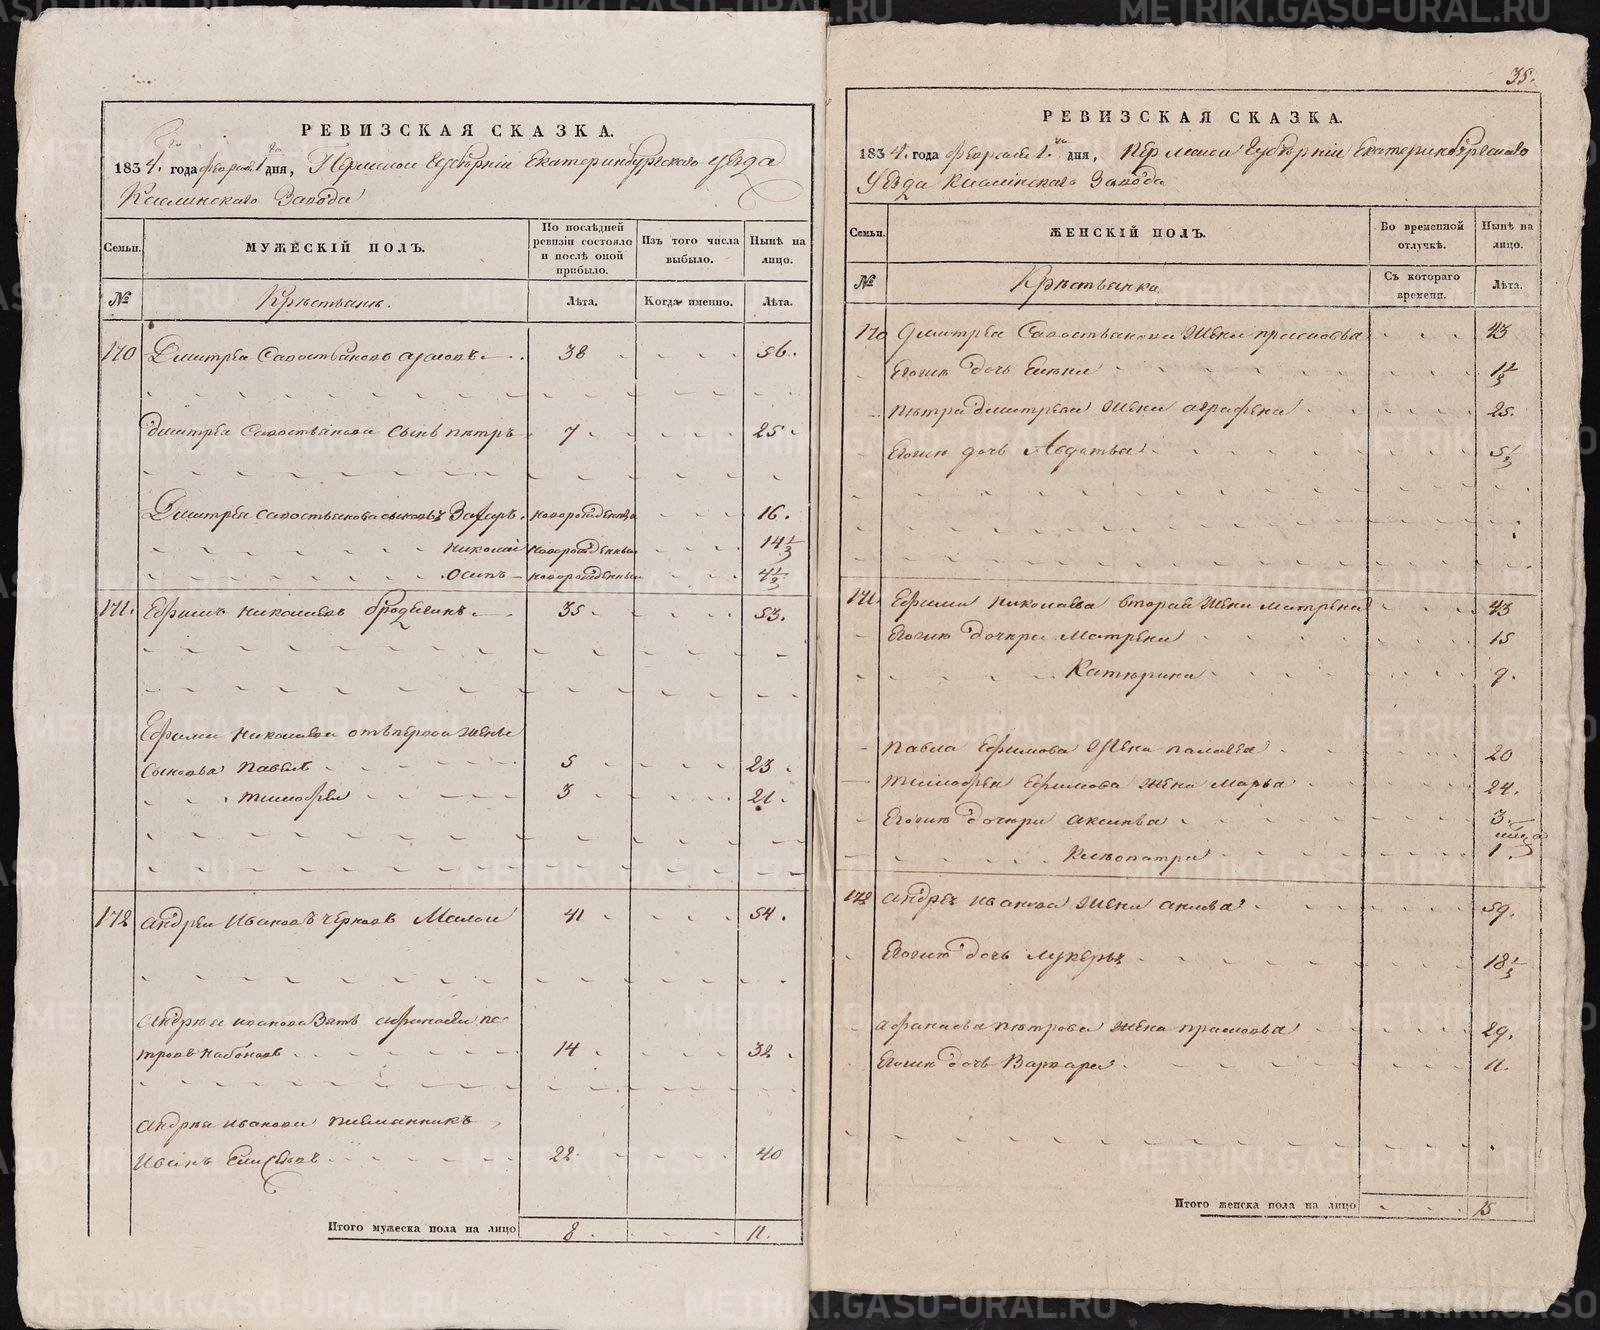 РЕВИЗСКАЯ СКАЗКА.
1834. года февраля 1 дня, Пермской Губернiи Екатеринбургскаго уезда
Каслинскаго Завода
Семьи.
МУЖЕСКIЙ ПОЛЪ.
По послѣдней ревизiи состояло и послѣ оной прибыло.
Изъ того числа выбыло.
Нынѣ на лицо.
№
Крестьяне.
Лѣта.
Когда именно.
Лѣта.
170 Дмитреи Савостьяновъ 38 56.
Дмитрея Савостьянова сынъ петръ 7 25
Дмитрея савостьянова сыновья Захаръ новорожденны 16.
николаи новорожденныи 14 1/2
Осипъ новорожденныи 4 1/2
171. Ефимъ николаевъ бродягинъ 35 53.
Ефима николаева отъ первои жены
сыновья павелъ 5 23
тимофеи 3 21.
172 андреи Ивановъ черновъ Малои 41 54.
андрея иванова Зять афанасеи пе-
тровъ набоковъ 14 32
андрея иванова племянникъ
Иванъ Елисеевъ 22 40
Итого мужеска пола на лицо 8. 11.
35.
РЕВИЗСКАЯ СКАЗКА.
1834. года февраля 1. дня, пермской Губернiи Екатеринбургскаго
Уезда Каслинскаго Завода
Семьи.
ЖЕНСКIЙ ПОЛЪ.
Во временной отлучкѣ.
Нынѣ на лицо.
№
Крестьянки
Съ котораго времени.
Лѣта.
170 Дмитрея Савостьянова Жена прасковья 43
Егоже дочь Елена 1 1/2
петра дмитрева жена аграфена 25.
Егоже дочь Авдотья 5 1/2
171. Ефима николаева вторая жена матрена 43
Егоже дочери Матрена 15
Катерина 9.
павла Ефимова жена палагея 20
тимофея Ефимова жена марья 24.
Егоже дочери аксинья 3.
Клеопатра 1
172 андрея иванова жена анисья 59.
Егоже дочь лукерья 18 1/2
афанасья петрова жена прасковья 29.
Егоже дочь Варвара 11.
Итого женска пола на лицо 15
METRIKI.GASO-URAL.RU